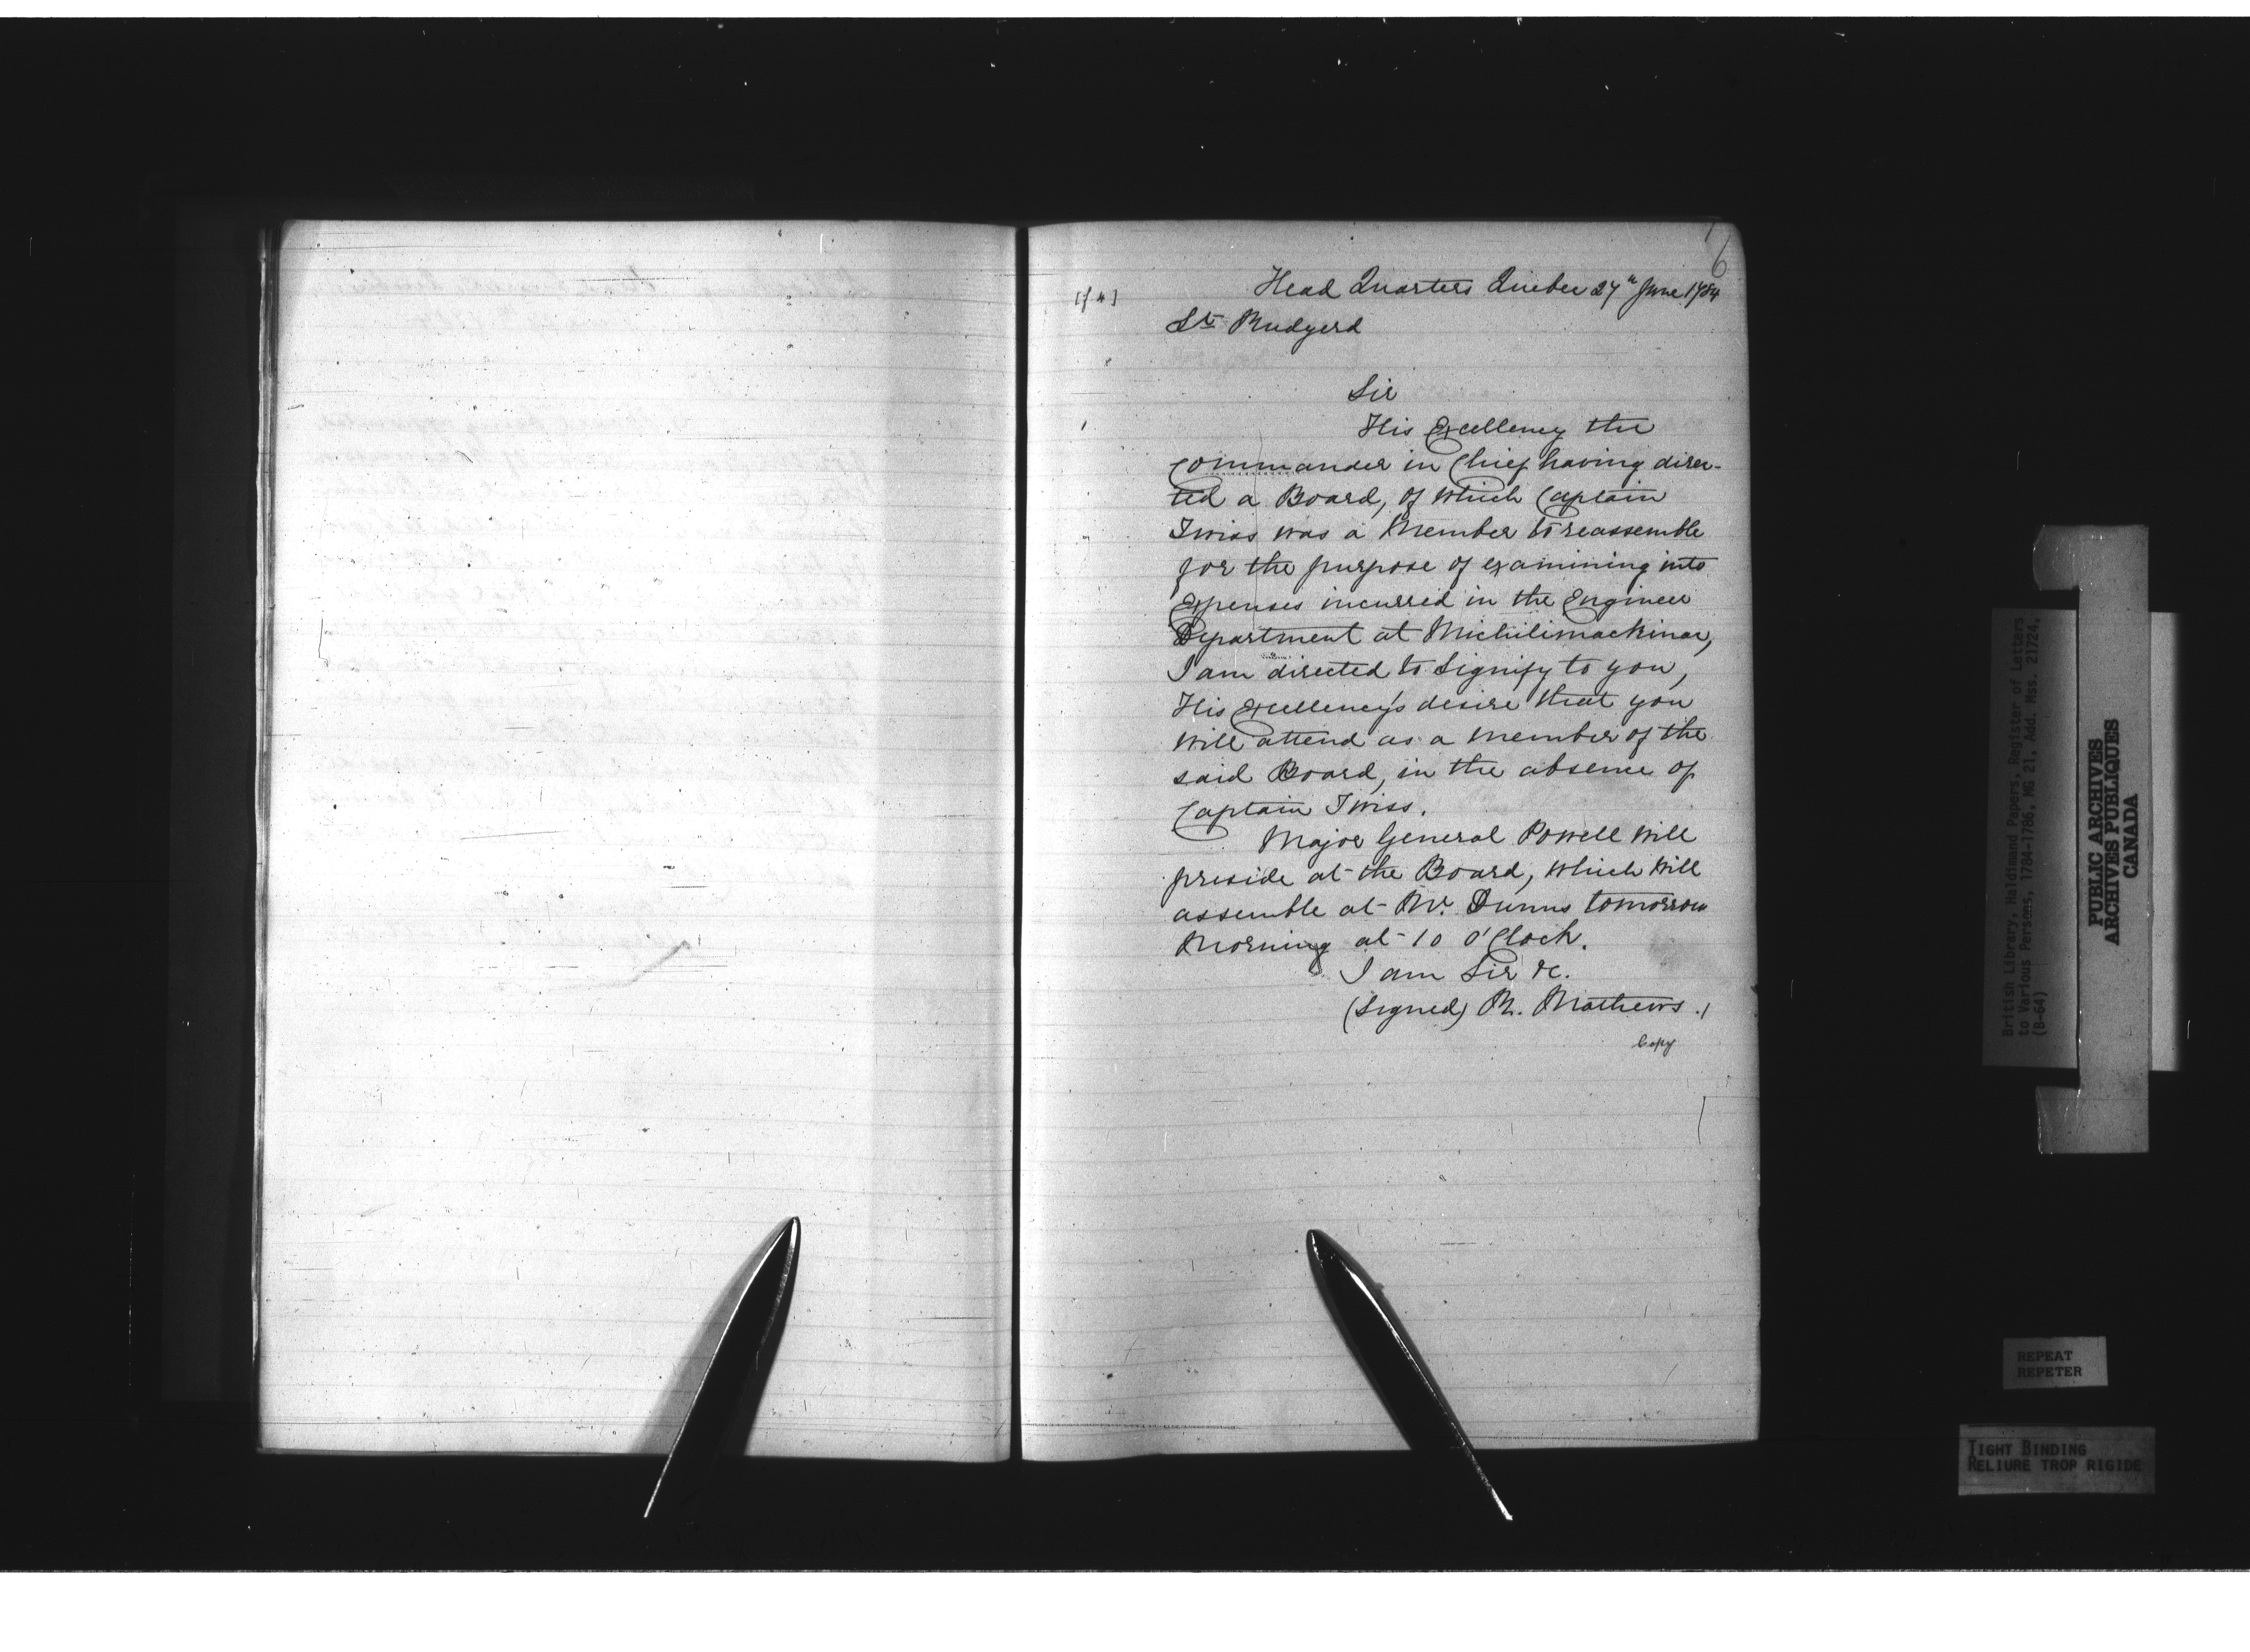 6
[f 4]
Head Quarters Quebec 27th June 1784
Lt Rudyerd
Sir
His Excellency the
Commander in Chief having direc-
ted a Board, of which Captain
Twiss was a Member to reassemble
for the purpose of examining into
Expenses incurred in the Engineer
Department at Michilimackinac,
I am directed to Signify to you,
His Excellency's desire that you
will attend as a member of the
said Board, in the absence of
Captain Twiss.
Major General Powell will
preside at the Board, which will
assemble at Mr. Dunns tomorrow
Morning at 10 O'Clock.
I am Sir &c.
(Signed) R. Mathews
Copy
British Library, Haldimand Papers, Register of Letters
to Various Persons, 1784-1786, MG 21, Add. Mss. 21724,
(B-64)
PUBLIC ARCHIVES
ARCHIVES PUBLIQUES
CANADA
REPEAT
REPETER
TIGHT BINDING
RELIURE TROP RIGIDE